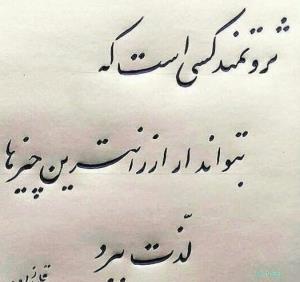 ثروتمند کسی است که
بتواند از ارزانترین چیزها
لذّت ببرد